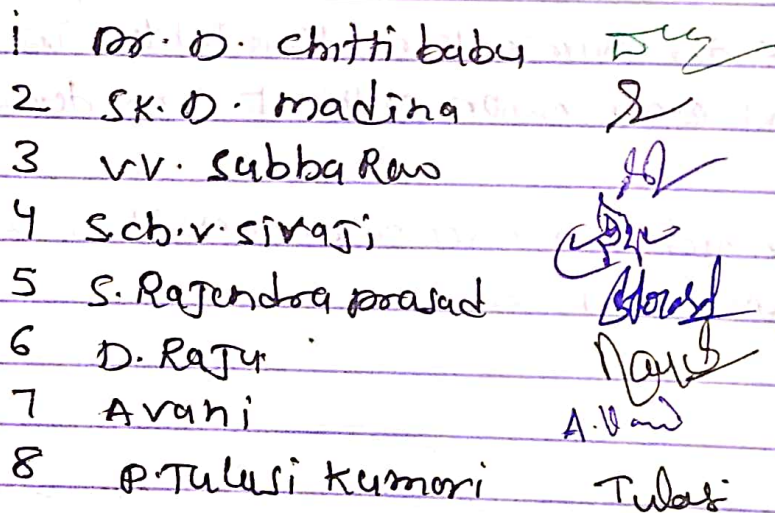 1 Dr. D. Chitti babu
2 SK. D. madina
3 VV. Subba Rao
4 S.ch.v. sivaji
5 S. Rajendra prasad
6 D. Raju
7 Avani A.Vani
8 P.Tulusi Kumari Tulasi